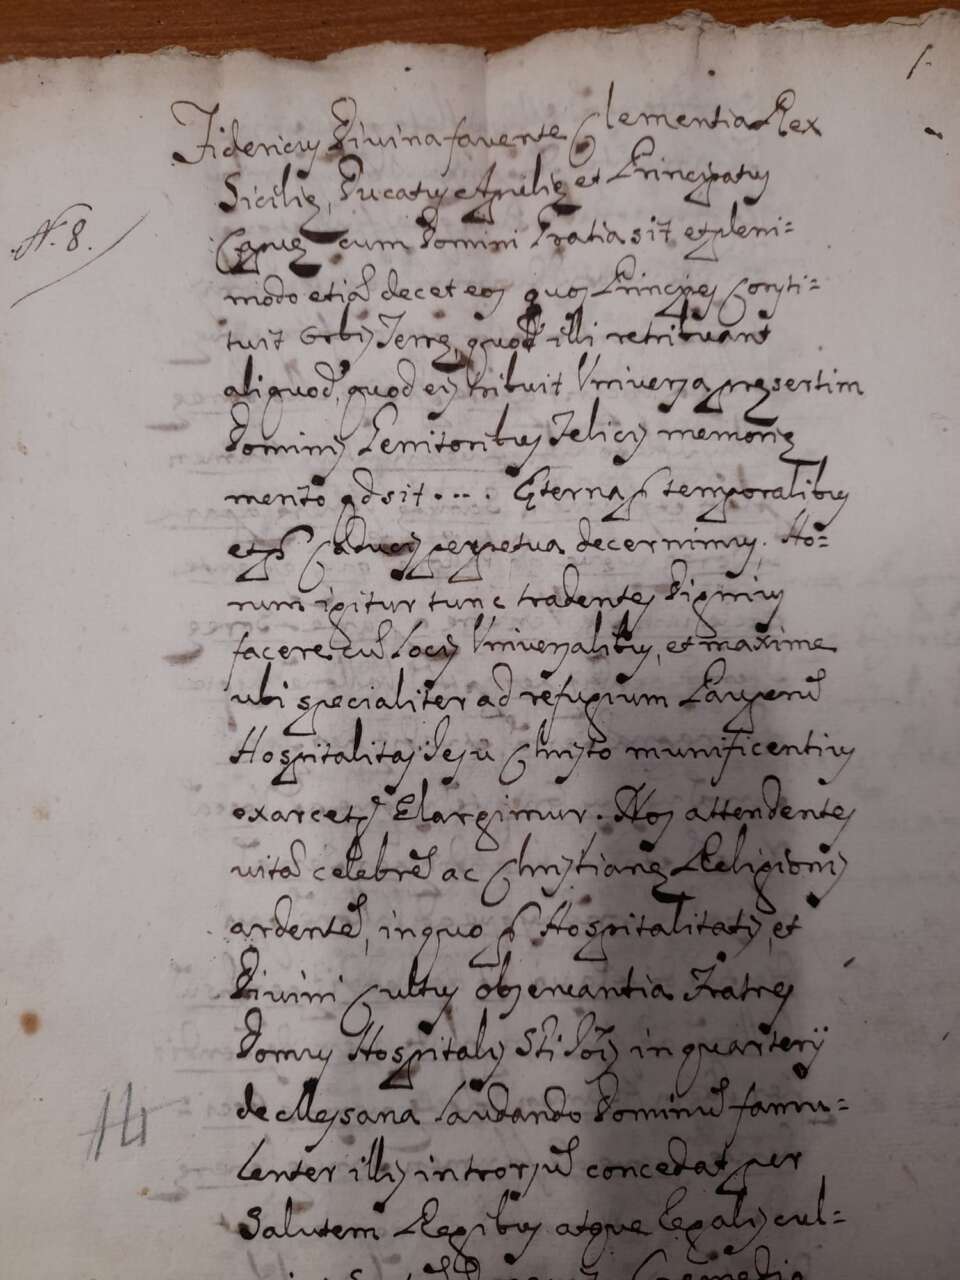 1.
Fidericus Divina favente Clementia Rex
N. 8.
Siciliæ, Ducatus Apuliæ et Principatus
Capuæ cum Domini Gratia sit et pleni=
modo etiã decet eos quos Principes Consti=
tuit Orbis Terræ, quod illi retribuant
aliquod, quod eis tribuit Universa præsertim
Dominis Genitoribus Felicis memoriæ
merito adsit .... Eterna p temporalibus
et p Caducis perpetua decernimus. Ho=
rum igitur tunc tradentes Dignius
facere cũ Locis Universalibus, et maxime
ubi specialiter ad refugium Pauperũ
Hospitalitas Jesu Christo munificentius
Elargimur. Nos attendentes
vitã celebrẽ ac Christianæ Religionis
ardentẽ, in quo p Hospitalitatis, et
Divini Cultus observantia Fratres
Domus Hospitalis Sti Jõis in quarterij
de Messana laudando Dominũ famu=
lenter illis introrsũ concedat per
Salutem Regibus atque legalis cul=
14